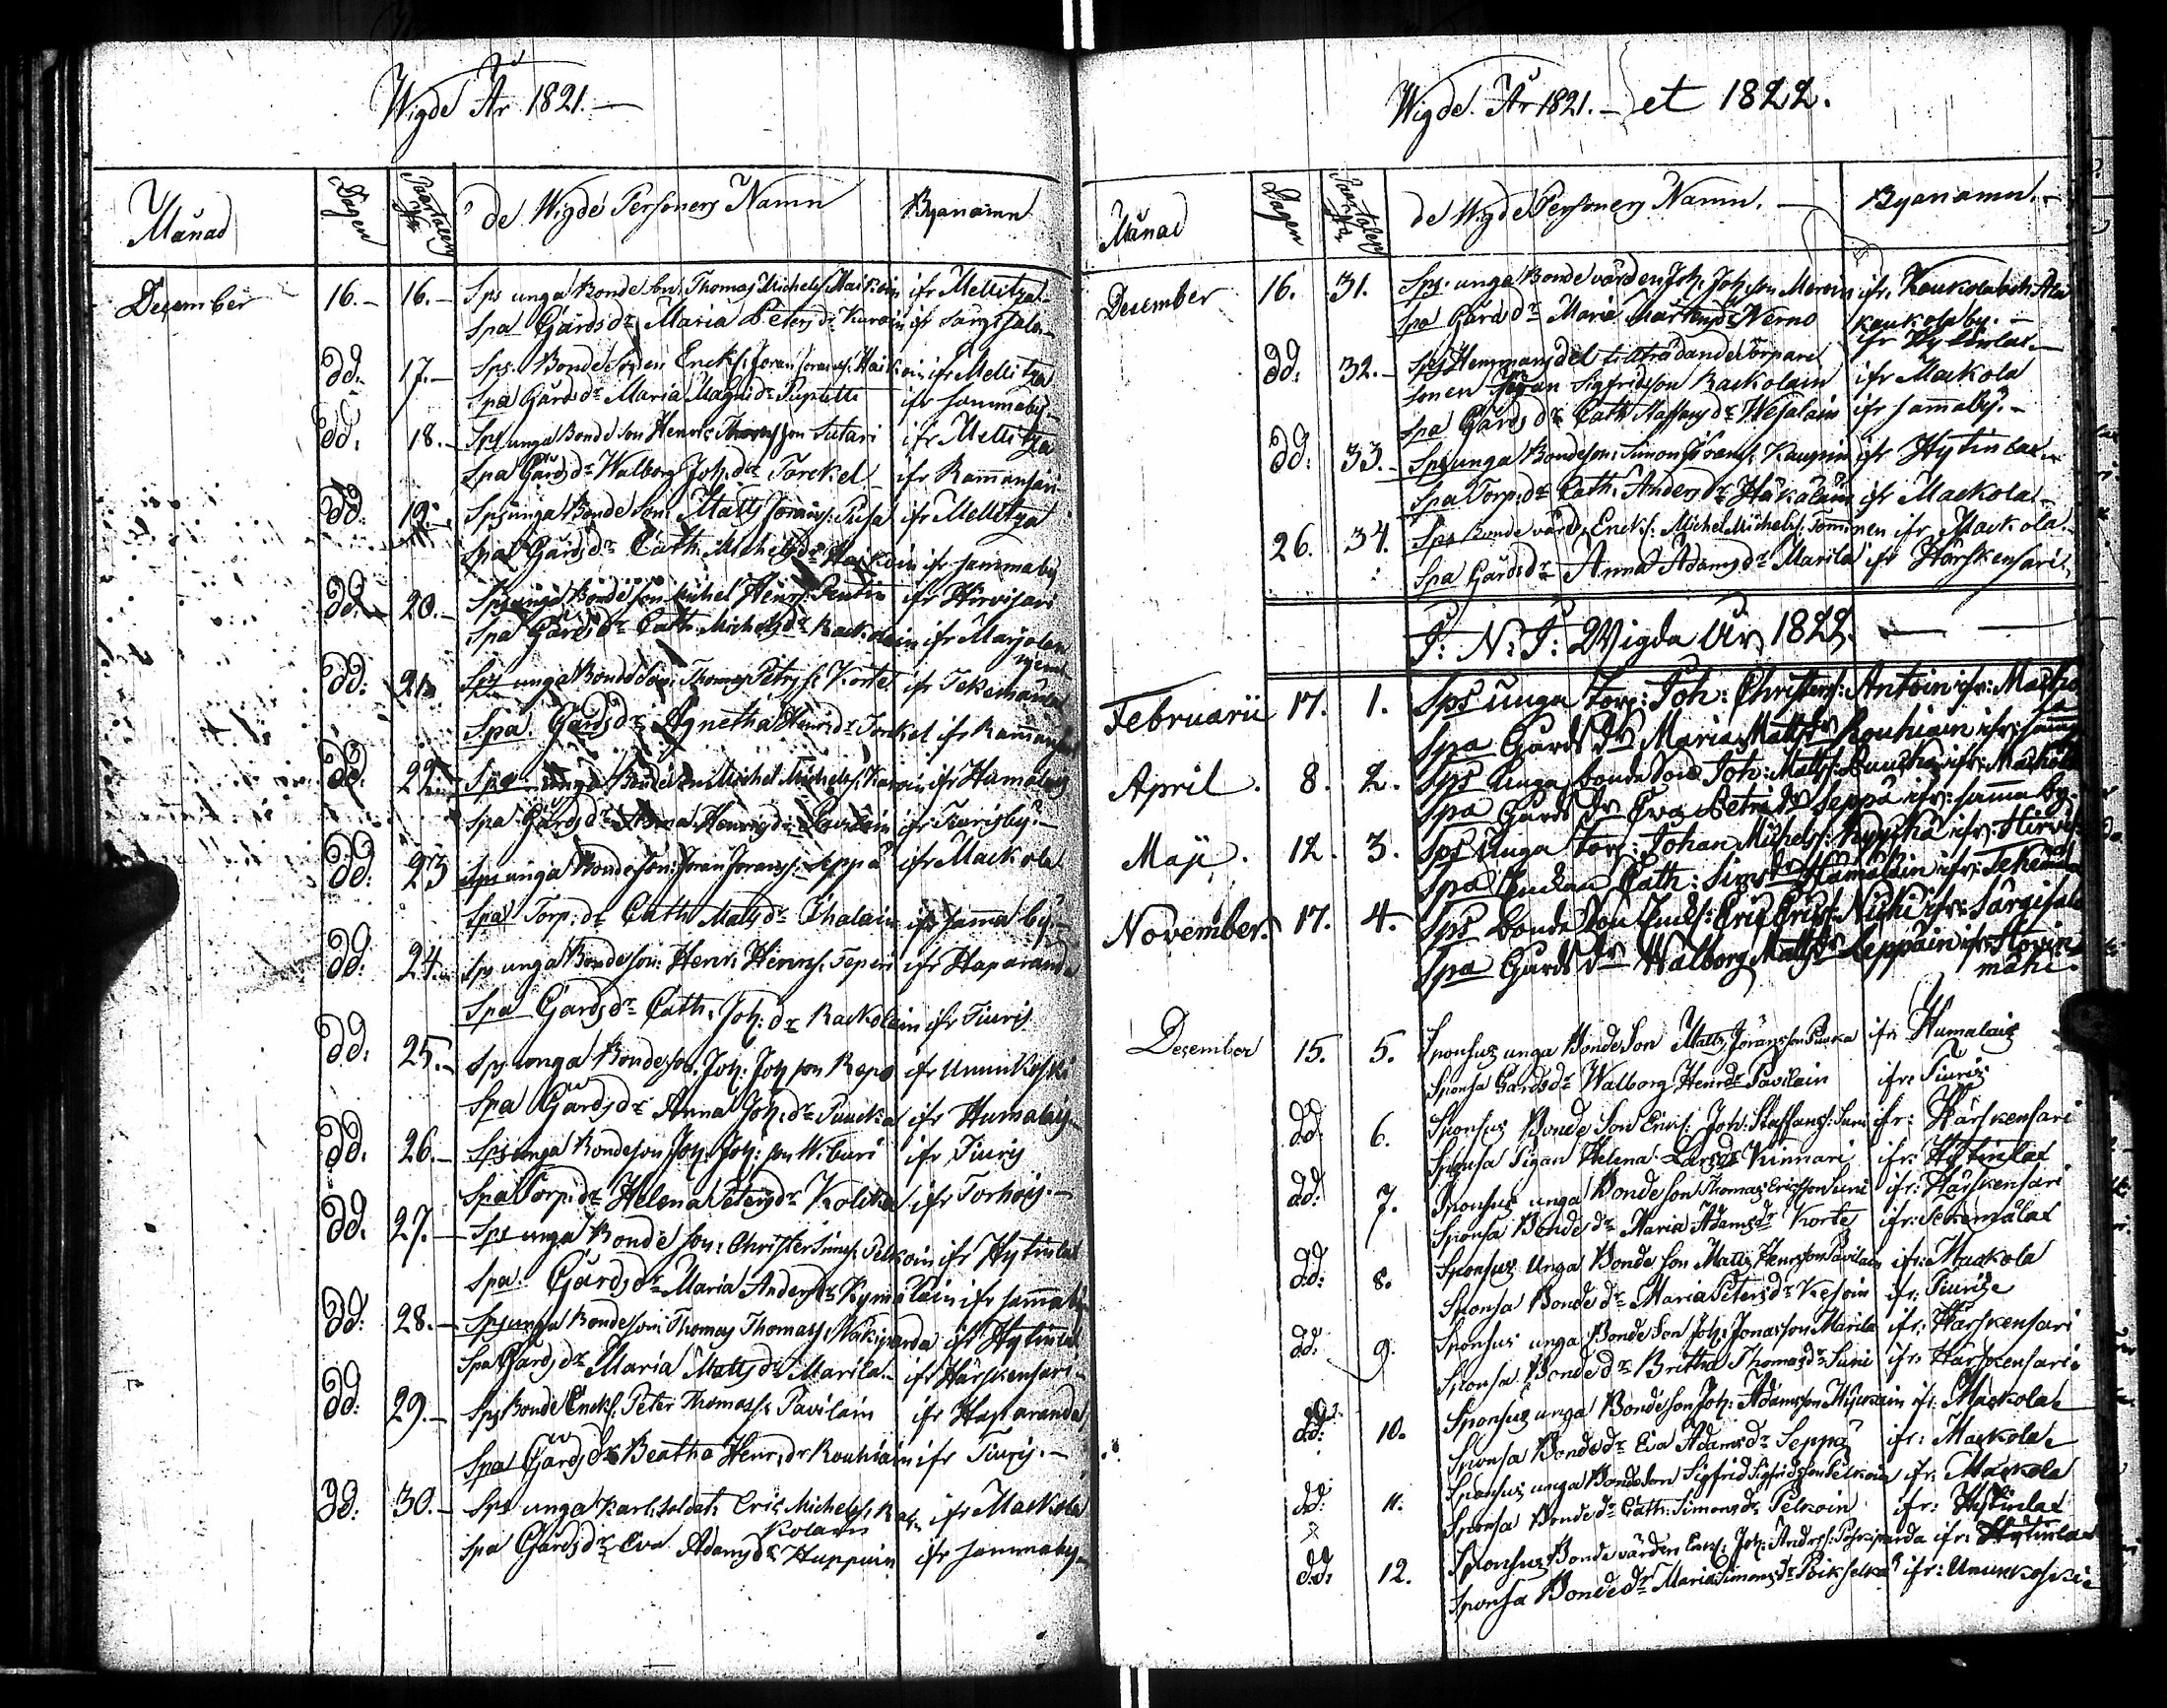 Wigde År 1821.—
Månad Dagen de Wigde Personers Namn Byanamn
December 16.— 16.— Sps unga Bonde Son Thomas Michelss. Maikoin ifr Mellitza
Spa Gårdsdr. Maria Petersdr. Karoin ifr
dd. 17.— Sps. Bonde Sonen Enckl. Joran Joranss. Maikoin ifr Mellitza
Spa Gårdsdr. Maria Magnidr. ifr sammaby.—
dd. 18.— Sps unga Bonde Son Henric Son Sutari ifr Mellitza
Spa Gårdsdr. Walborg Joh:dr. Torckel ifr Rammansari
dd. 19.— Sps unga Bonde Son Matts Jöranss. Tusa ifr Mellitza
Spa Gårdsdr. Cath. Michelsdr. Maikoin ifr sammaby
dd. 20.— Sps unga Bonde Son Michel Henrss. ifr Hirvisari
Spa Gårdsdr. Cath. Michelsdr. Rackolain ifr
dd. 21. Sps unga Bonde Son Thomas Petrss. Korte ifr
Spa. Gårdsdr. Agnetha Henrsdr. Torckel ifr
dd. 22. Sps unga Bonde Son Michel Michelss. ifr Humalais
Spa Gårdsdr. Anna Henricsdr. Pavilain ifr Tiurisby.—
dd. 23 Sps unga Bonde Son: Joran Joranss: Seppä ifr Mackola
Spa Torp:dr. Cath Mattsdr. Ihalain ifr samma by.—
dd. 24. Sps unga Bonde Son: Henr: Henrss. Teperi ifr Haparanda
Spa Gårdsdr. Cath. Joh:dr. Rackolain ifr Tiuris
dd. 25.— Sps unga Bonde Son. Joh: Joh:son Repo ifr Unnunkoski
Spa Gårdsdr. Anna Joh:dr. Puucka ifr Humalais.
dd. 26.— Sps unga Bonde Son Joh: Joh:son Wiburi ifr Tiuris
Spa Torp:dr. Helena Petersdr. ifr Torhois.—
dd. 27.— Sps unga Bonde Son: Christer Simss. Pelkoin ifr Hytinlax
Spa. Gårdsdr. Maria Andersdr. Kymäläin ifr sammaby
dd. 28.— Sps unga Bonde Son: Thomas Thomass: Näkiparda ifr Hytinlax
Spa Gårdsdr. Maria Mattsdr. Marila. ifr Härskensari.
dd. 29.— Sps Bonde Enckl: Peter Thomass. Pavilain ifr Haparanda
Spa Gårdsdr. Beatha Henr:dr. Rouhiain ifr Tiuris.—
dd. 30.— Sps unga Karl. Soldat: Eric Michelss. Rac- ifr Mackola
kolain
Spa Gårdsdr. Eva Adamsdr. Huppoin ifr sammaby
Wigde. År 1821.— et 1822.
Månad Dagen de Wigde Personers Namn.— Byanamn.—
December 16. 31. Sps. unga Bonde värden Joh. Joh:son Moroin ifr. Kaukola och Ala
Spa Gårdsdr. Maria Mårtensdr. Werno kaukola by.—
ifr Hytinlax.—
dd: 32.— Sps Hemmansdel tillträdande Torpare
sonen Jöran Sigfridsson Rackolain ifr Mackola
Spa Gårdsdr. Cath. Staffansdr. Wesalain ifr sammaby.—
dd: 33.— Sps unga Bonde Son: Simon Jöranss. Kaupin ifr Hytinlax
Spa Torp:dr. Cath: Andersdr. Häkäläin ifr Mackola.
26. 34. Sps Bonde värd. Enckl: Michel Michelss: Tominen ifr Mackola.
Spa Gårdsdr. Anna Adamsdr. Marila ifr Härskensari.
J: N: J: Wigda År 1822.—
Februarii 17. 1. Sps unga Torp: Joh: Christerss: Antoin ifr: Macko
la
Spa Gårdsdr. Maria Mattsdr. Rouhiain ifr: samma
April. 8. 2. Sps Unga bonde Son Joh: Mattss: Puucka ifr: Mackola
Spa Gårdsdr. Eva Petridr. Seppä ifr: samma by.
Maji. 12. 3. Sps Unga Torp: Johan Michelss: ifr: Hirvis
Spa Enckan Cath: Simsdr. Hämäläin ifr:
November. 17. 4. Sps bonde Son Enckl: Eric Ericss: Nicki ifr: Särgisalo
Spa Gårdsdr. Walborg Mattsdr. Leppäin ifr:
mäki.
December 15. 5. Sponsus unga Bonde Son Matts Jöransson Puucka ifr: Humalais
Sponsa Gårdsdr. Walborg Henrdr. Pavilain ifr: Tiuris
dd: 6. Sponsus Bonde Son Enckl: Joh: Staffanss: Suni ifr: Härskensari
Sponsa Pigan Helena Larsdr. Kinnari ifr: Hytinlax
dd: 7. Sponsus unga Bonde Son Thomas Ericsson Suni ifr: Härskensari
Sponsa Bondedr. Maria Adamsdr. Korte ifr:
dd: 8. Sponsus Unga Bonde Son Matts Henrsson Pavilain ifr: Mackola
Sponsa Bondedr. Maria Petersdr. Kesoin ifr: Tiuris
dd: 9. Sponsus unga Bonde Son Joh: Jonasson Marila ifr: Härskensari
Sponsa Bondedr. Britha Thomasdr. Suni ifr: Härskensari
dd: 10. Sponsus unga Bonde Son Joh: Adamsson ifr: Mackola
Sponsa Bondedr. Eva Adamsdr. Seppä ifr: Mackola
dd: 11. Sponsus unga Bonde Son Sigfrid Sigfridsson Pelkoin ifr: Mackola
Sponsa Bondedr. Cath: Simonsdr. Pelkoin ifr: Hytinlax
dd: 12. Sponsus Bonde värden Enkl: Joh: Andrss: ifr: Hytinlax
Sponsa Bondedr. Maria Simonsdr. Poikselkä ifr: Unnunkoski